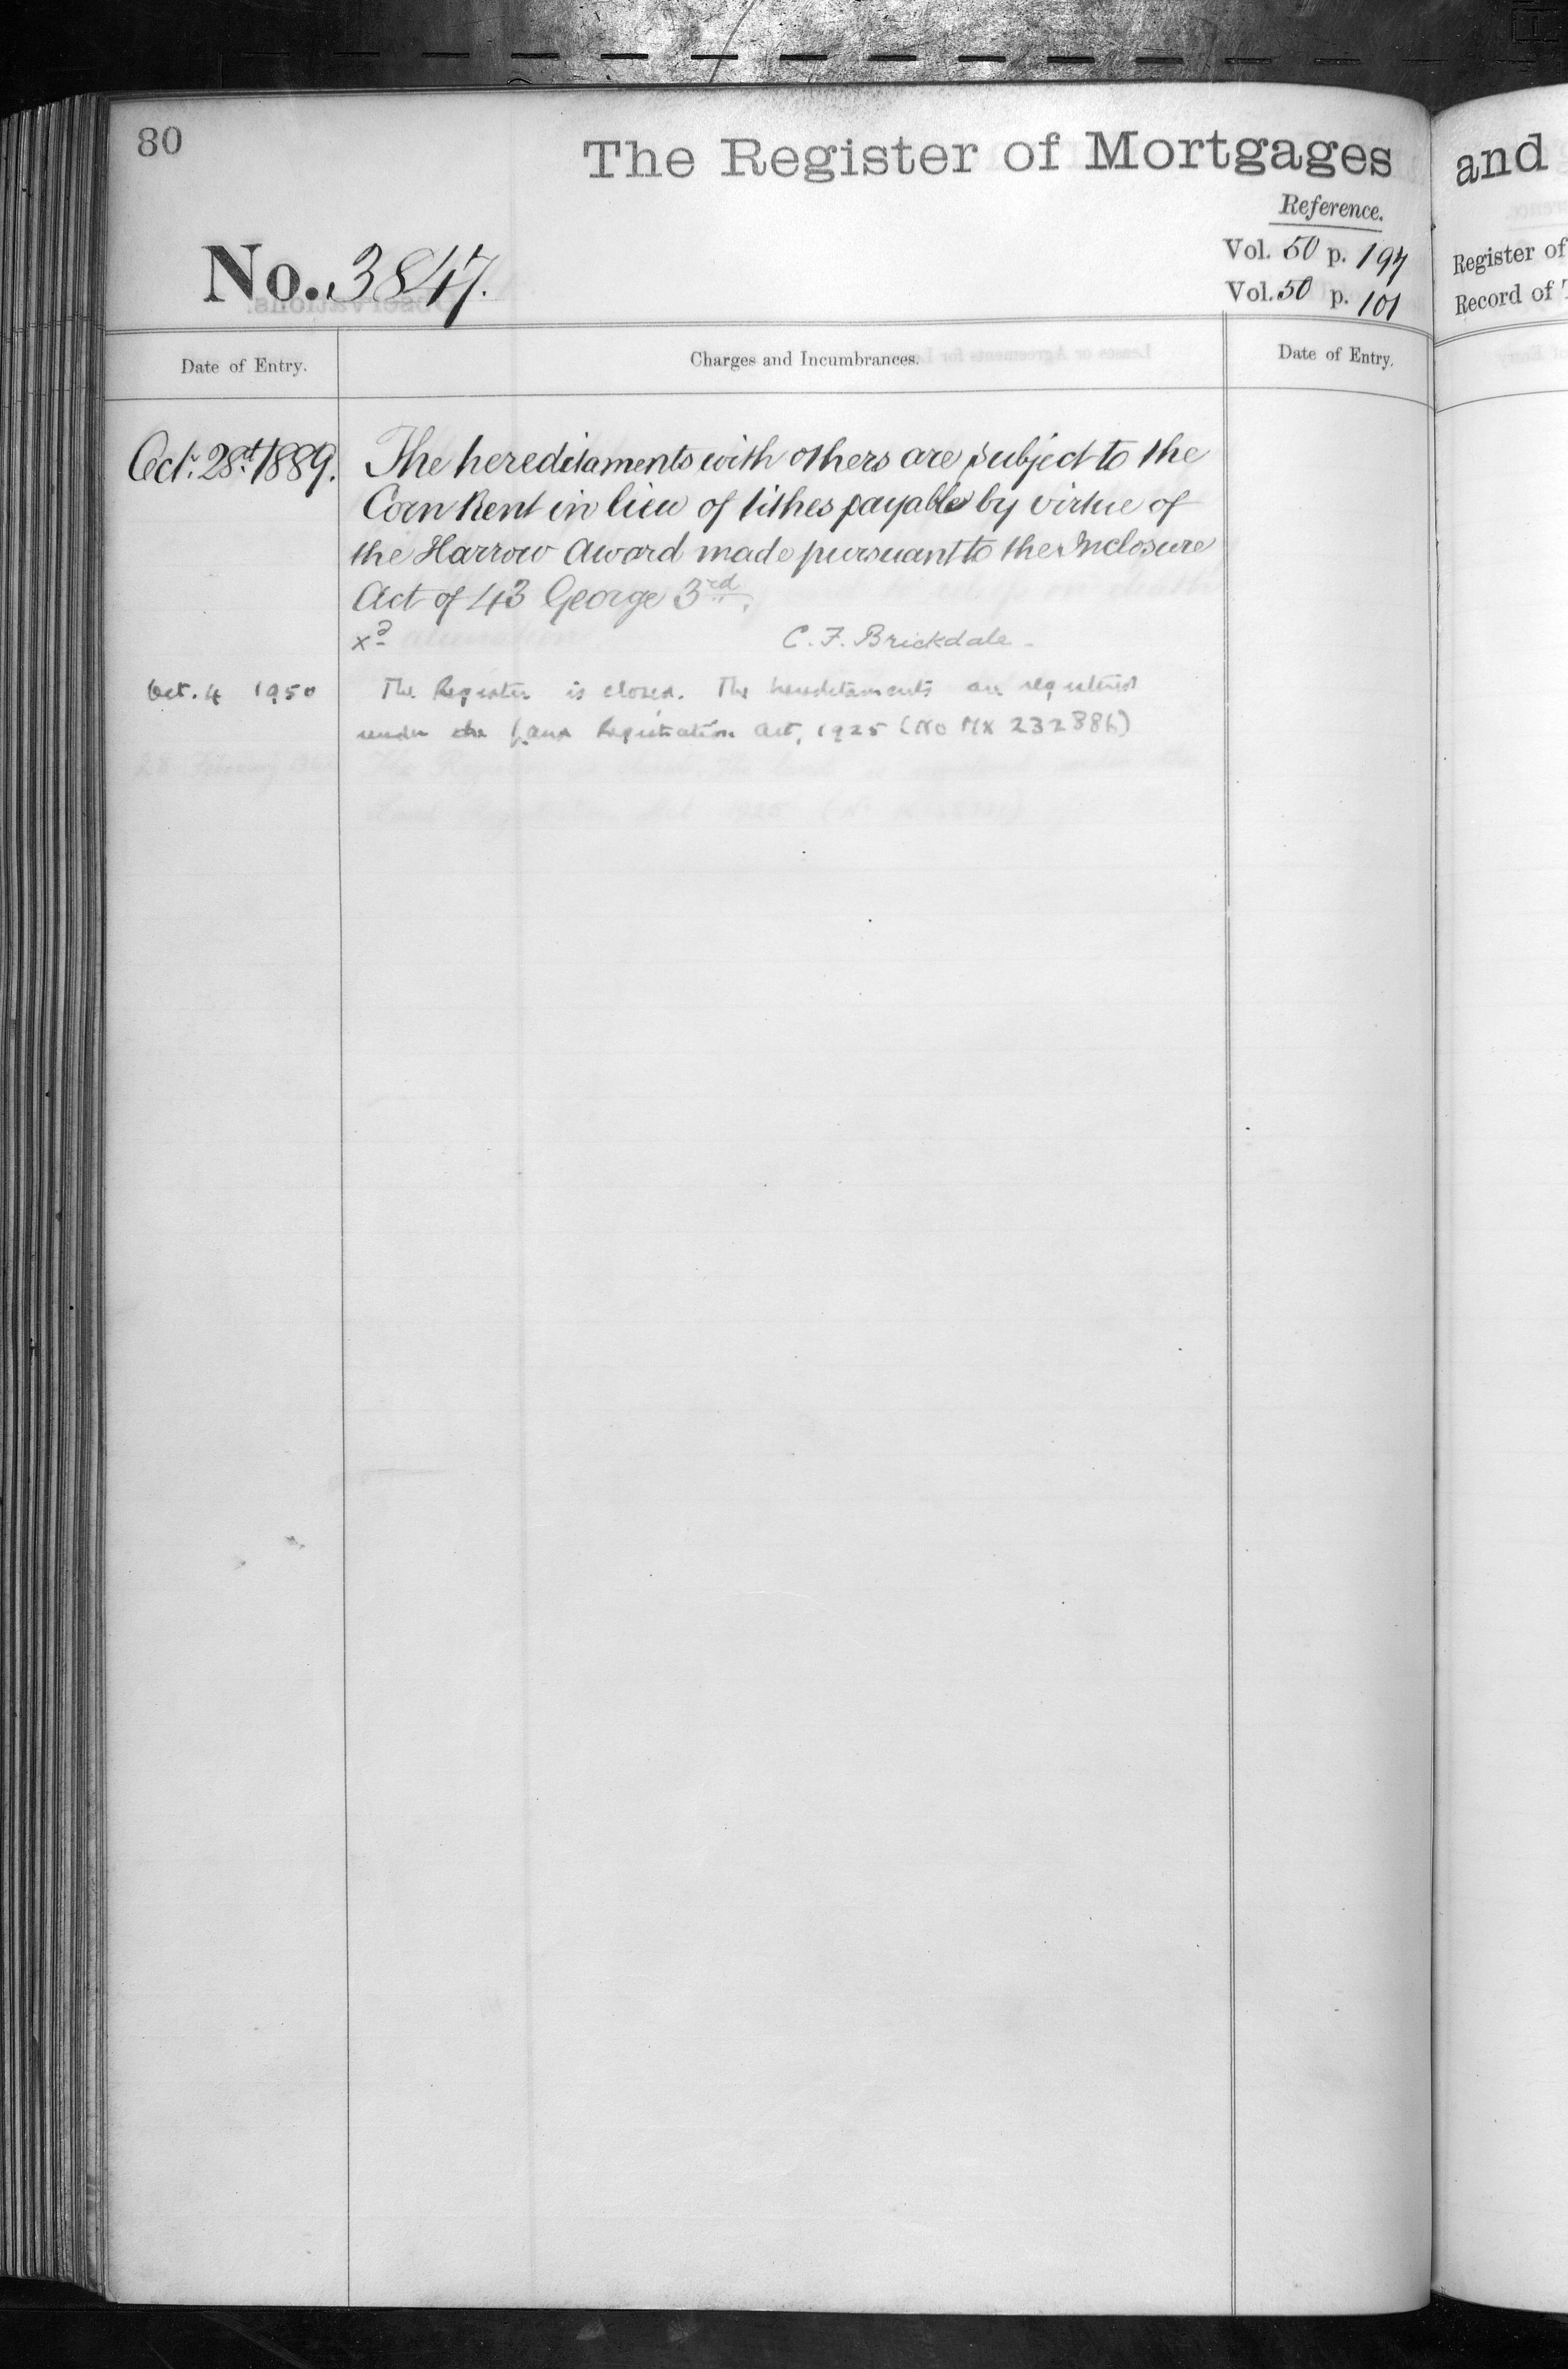 80
The Register of Mortgages
and
Reference.
No. 3847.
Vol. 50 p. 197
Vol. 50 p. 101
Register of
Record of
Date of Entry.
Charges and Incumbrances.
Date of Entry.
Oct. 28th 1889.
The hereditaments with others are subject to the
Corn Rent in lieu of tithes payable by virtue of
the Harrow Award made pursuant to the Inclosure
Act of 43 George 3rd.
xd
C. F. Brickdale
Oct. 4 1950
The Register is closed. The hereditaments are registered
under the Land Registration Act, 1925 (No MX 232886)